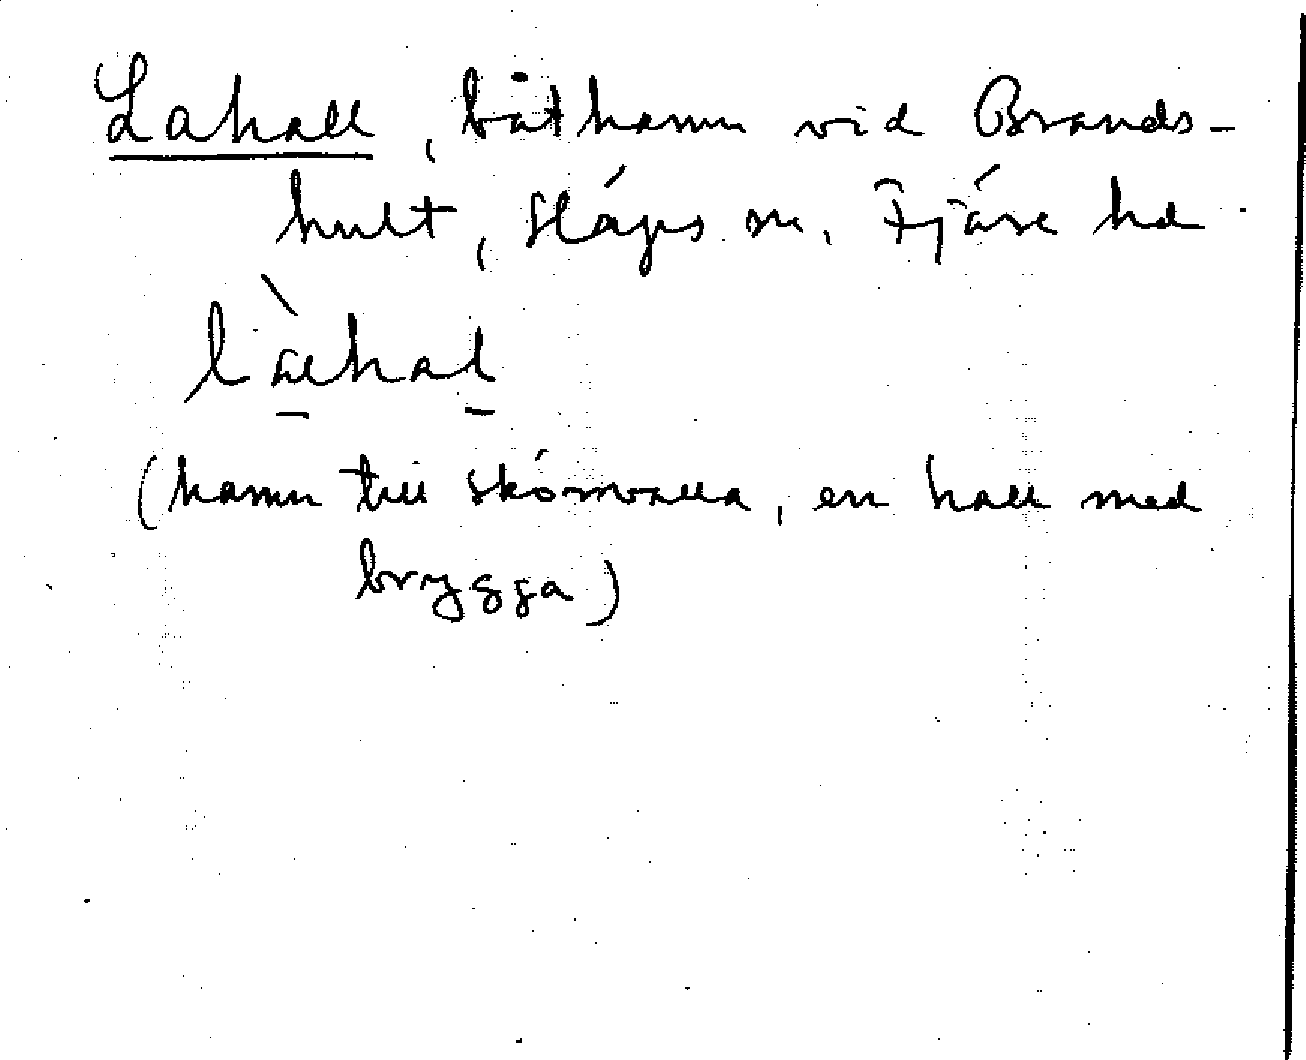 Lahall, båthamn vid Brands-
hult, Släps sn. Fjäre hd
(hamn till skömvalla, en hall med
brygga)